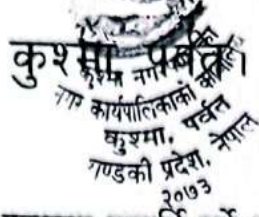 कुश्मा, पर्वत।
कुश्मा नगर
नगर कार्यपालिकाको कार्यालय
कुश्मा, पर्वत
गण्डकी प्रदेश, नेपाल
२०७३